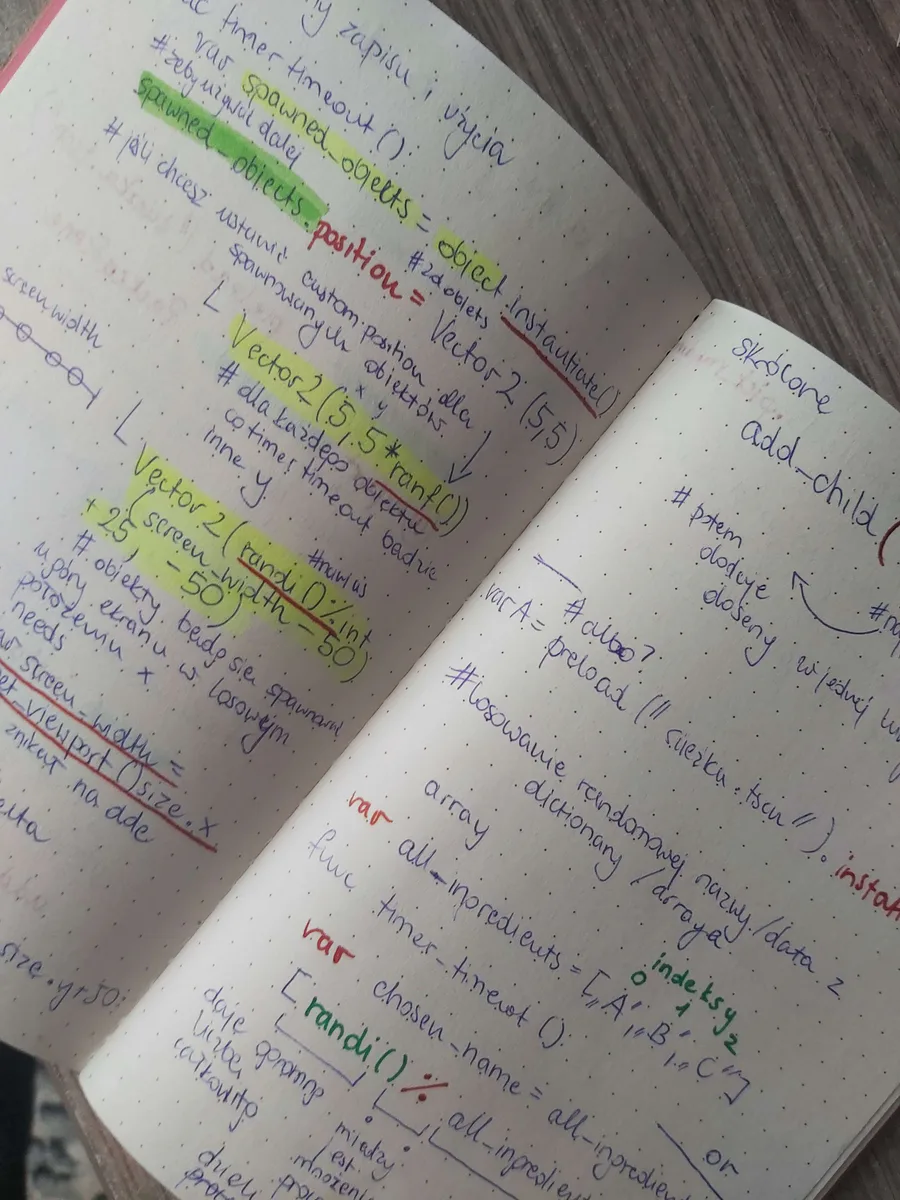 zapisu i użycia
timer timeout ():
var spawned_objects = object.instantiate()
#żeby używać dalej
#za objets
spawned_objects.position = Vector2 (5,5)
# jeśli chcesz ustawić custom position dla
spawnowanych obiektów
x y
Vector2 (5, 5 * ranf())
# dla każdego obiektu
co timer timeout będzie
inne y
screen width
Vector2 (randi() % int
(screen_width - 50)
+ 25, - 50)
# obiekty będą się spawnować
u góry ekranu w losowym
położeniu x
needs
var screen_width =
get_viewport().size.x
znikać na dole
size.y+50:
skrócone
add_child (
# potem
dodaje
do sceny
w jednej
# albo?
var A = preload ("ścieżka.tscn").
# losowanie randomowej nazwy/data z
dictionary / arraya
array
indeksy
0 1 2
var all_ingredients = ["A", "B", "C"]
func timer_timeout ():
var chosen_name = all_ingredien
[randi() % all_ingredien
or
daje ogromną
liczbę
całkowitą